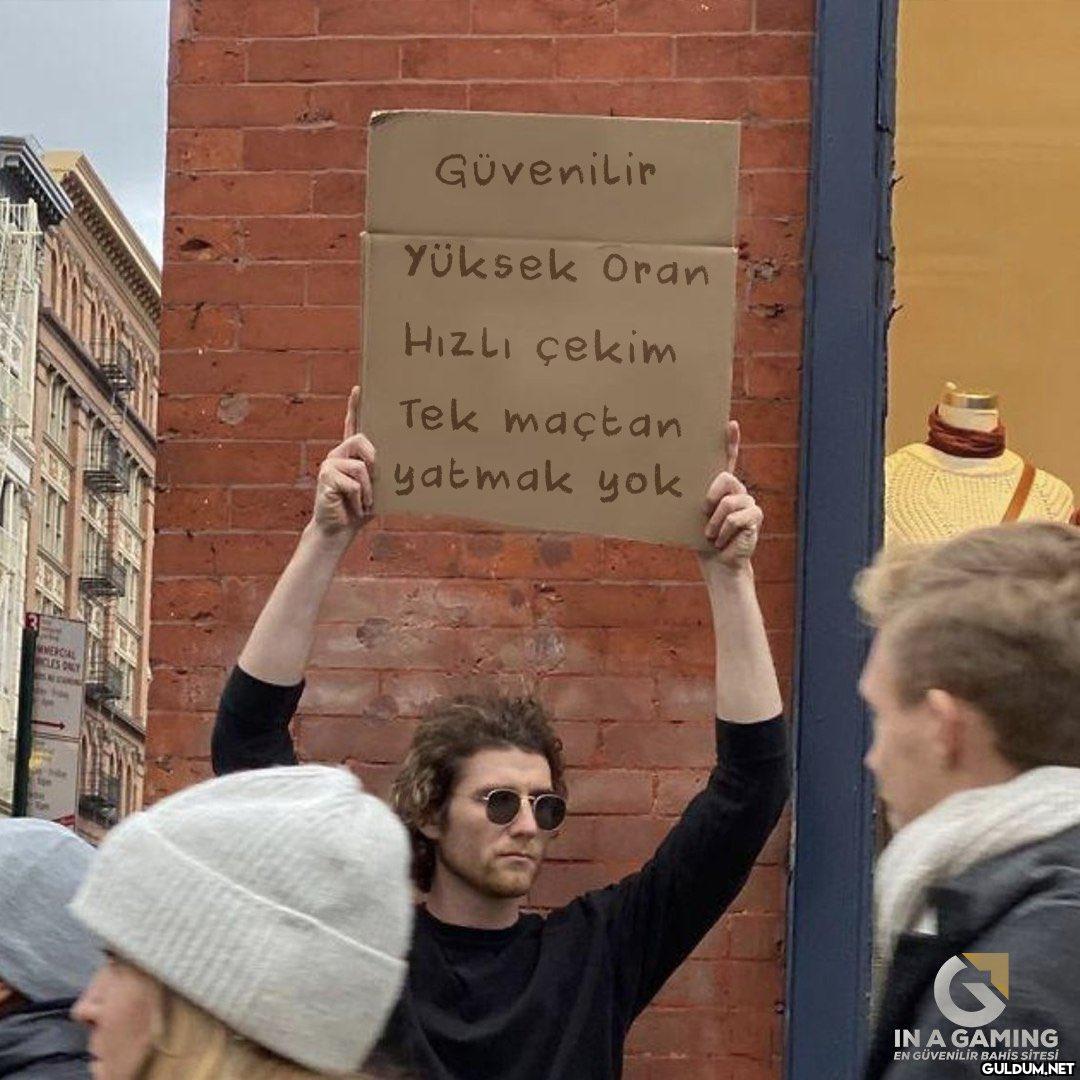 Güvenilir
Yüksek Oran
Hızlı çekim
Tek maçtan
yatmak yok
3
COMMERCIAL
VEHICLES ONLY
IN A GAMING
EN GÜVENİLİR BAHİS SİTESİ
GULDUM.NET